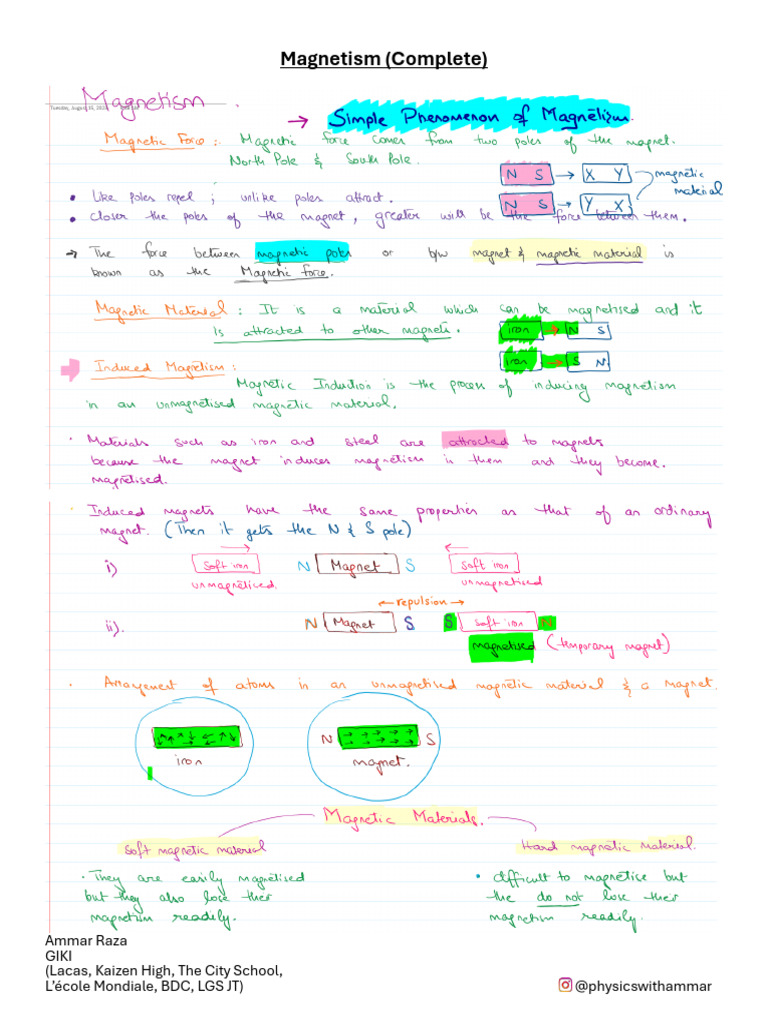 Magnetism (Complete)
Magnetism.
Tuesday, August 15, 2023
→ Simple Phenomenon of Magnetism.
Magnetic Force: Magnetic force comes from two poles of the magnet.
North Pole & South Pole.
N S → X Y magnetic
material
• Like poles repel ; unlike poles attract.
N S → Y X
• closer the poles of the magnet, greater will be the force between them.
→ The force between magnetic poles or b/w magnet & magnetic material is
known as the Magnetic force.
Magnetic Material : It is a material which can be magnetised and it
is attracted to other magnets.
iron → N S
iron → S N
Induced Magnetism :
Magnetic Induction is the process of inducing magnetism
in an unmagnetised magnetic material.
• Materials such as iron and steel are attracted to magnets
because the magnet induces magnetism in them and they become.
magnetised.
• Induced magnets have the same properties as that of an ordinary
magnet. (Then it gets the N & S pole)
i) Soft iron N Magnet S Soft iron
unmagnetised. unmagnetised
← repulsion →
ii). N Magnet S S Soft iron N
magnetised (temporary magnet)
• Arrangement of atoms in an unmagnetised magnetic material & a magnet.
N S
iron magnet.
Magnetic Materials.
Soft magnetic material Hard magnetic material.
• They are easily magnetised
but they also lose their
magnetism readily.
• difficult to magnetise but
the do not lose their
magnetism readily.
Ammar Raza
GIKI
(Lacas, Kaizen High, The City School,
L'école Mondiale, BDC, LGS JT)
@physicswithammar